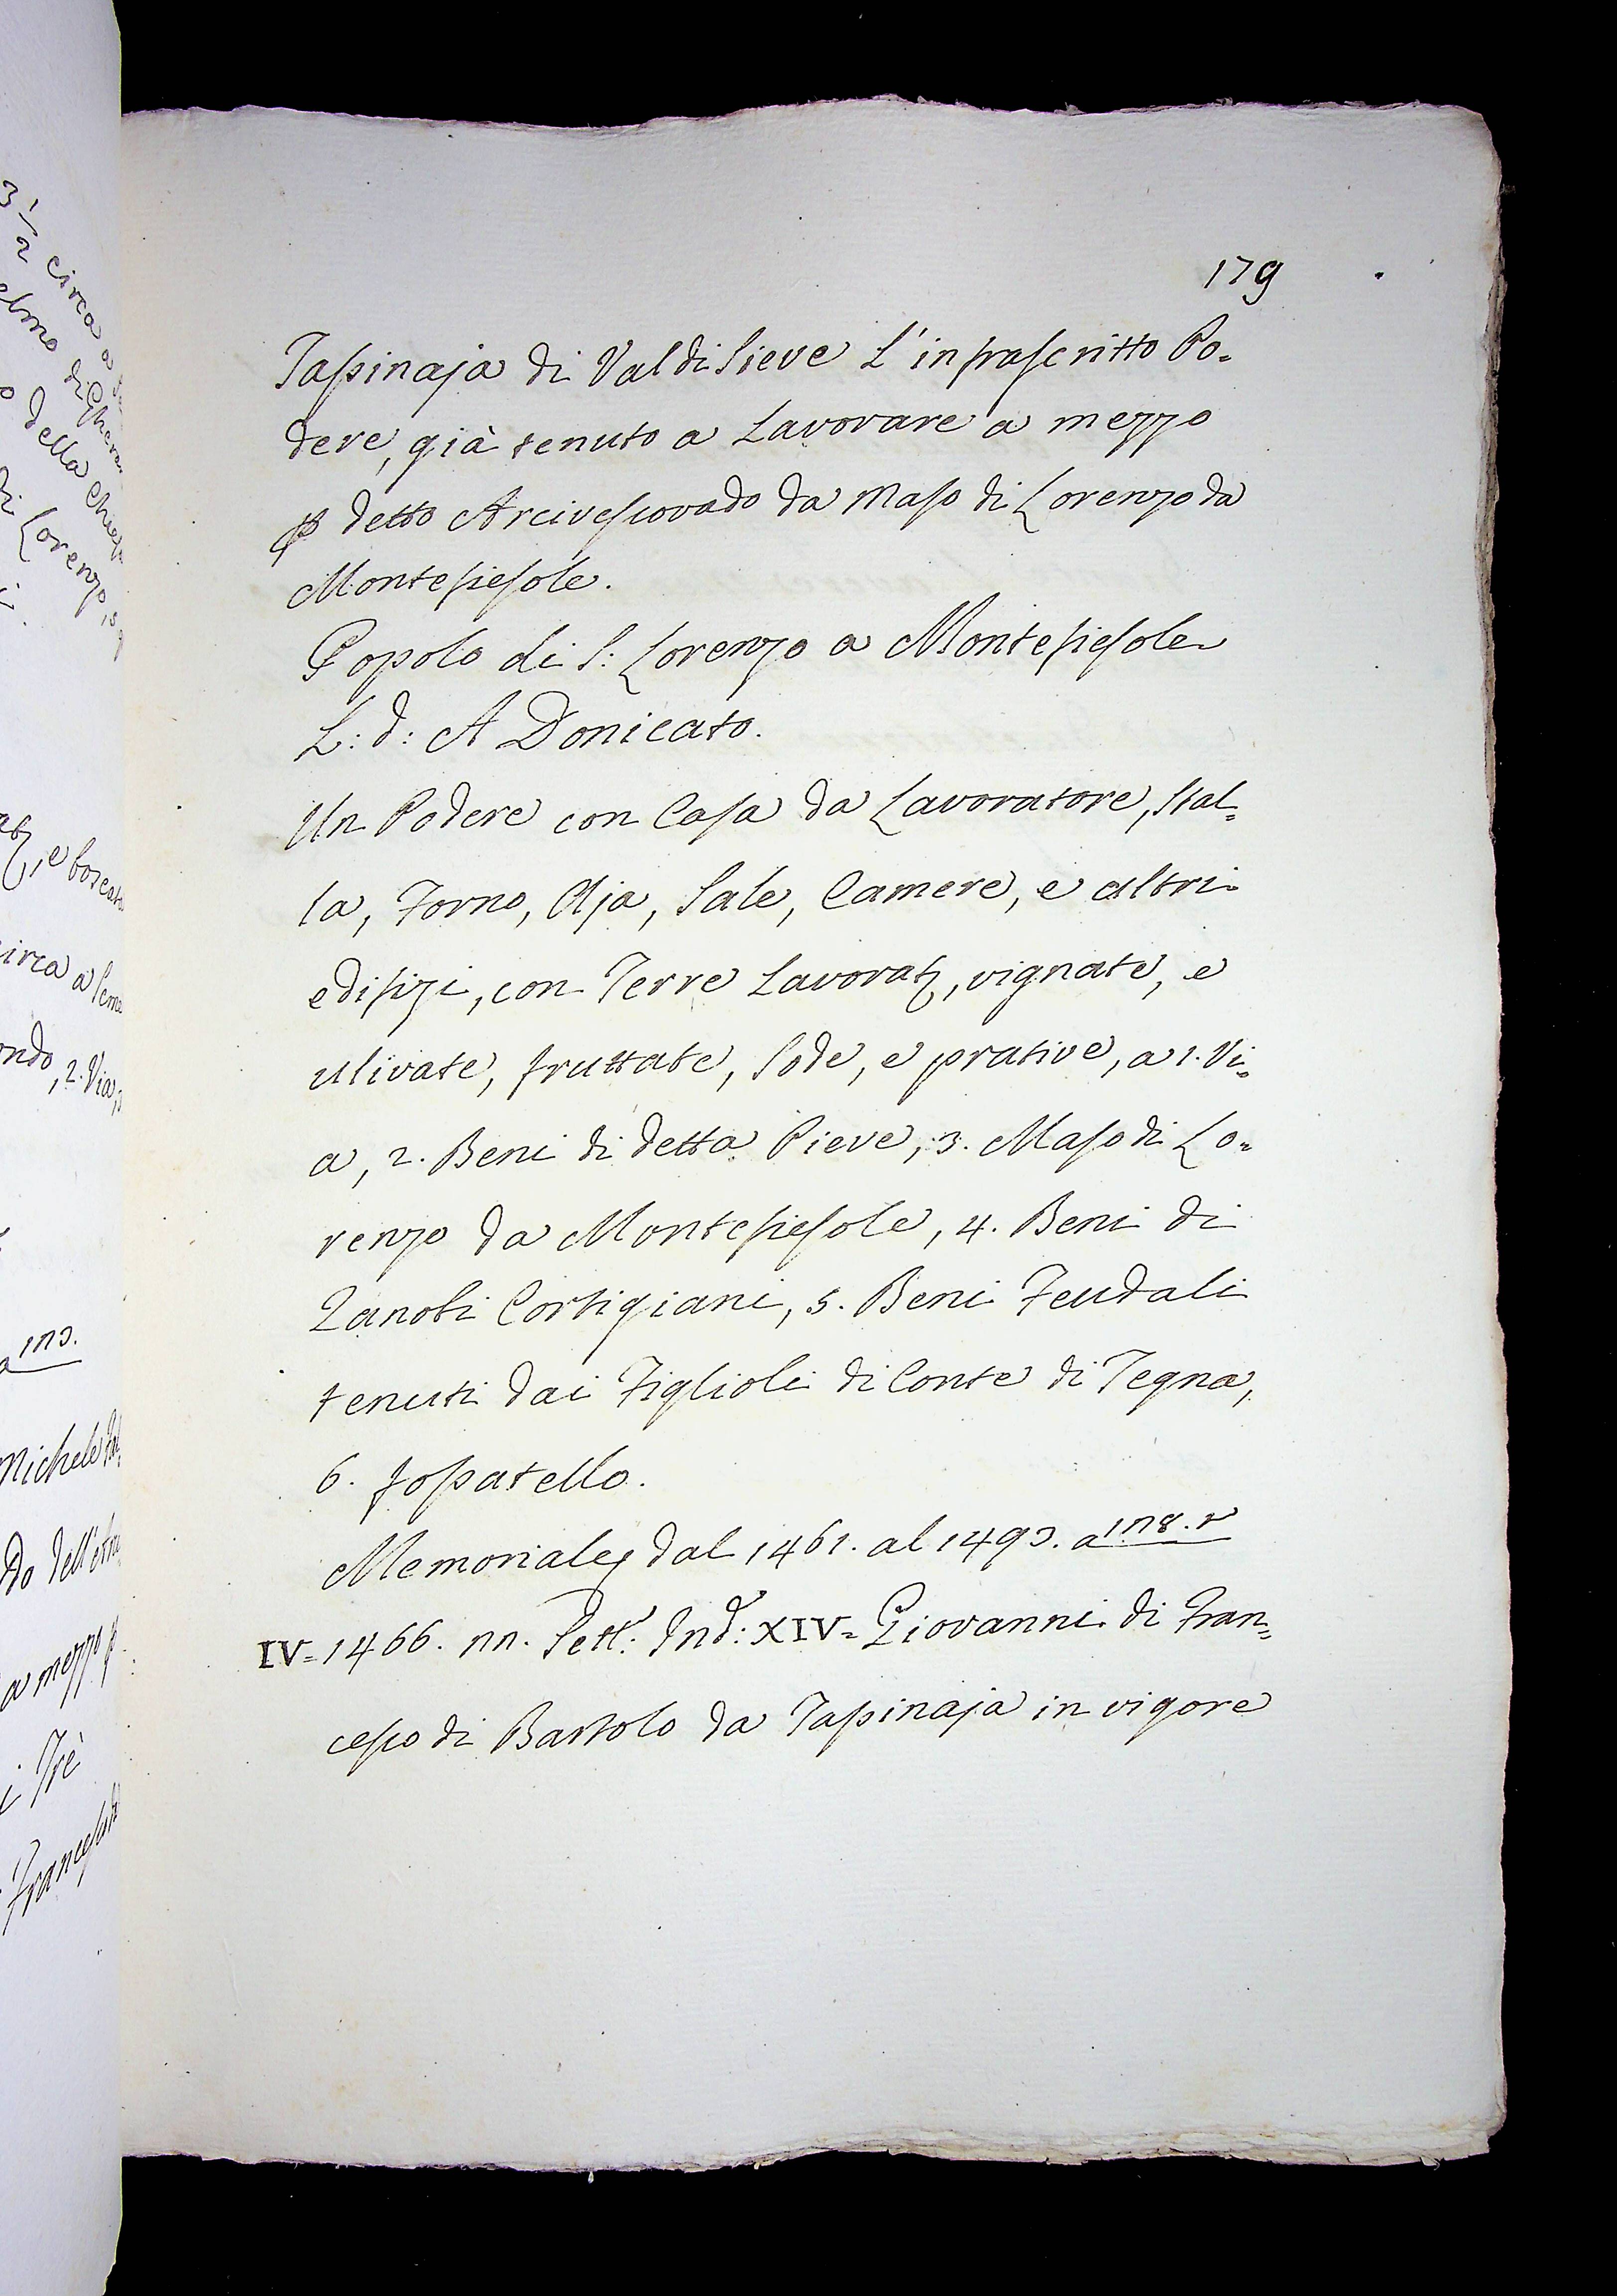 179
Tassinaja di Valdisieve L'infrascritto Po-
dere, già tenuto a Lavorare a mezzo
p detto Arcivescovado da Maso di Lorenzo da
Montefiesole.
Popolo di S: Lorenzo a Montefiesole
L: d: A Donicato.
Un Podere con Casa da Lavoratore, Stal=
la, Forno, Aja, Sale, Camere, e altri
edifizi, con Terre Lavorat, vignate, e
ulivate, fruttate, Sode, e prative, a 1. Vi=
a, 2. Beni di detta Pieve, 3. Maso di Lo=
renzo da Montefiesole, 4. Beni di
Zanobi Cortigiani, 5. Beni Feudali
tenuti dai Figlioli di Conte di Tegna,
6. fossatello.
Memoriale dal 1461. al 1493. a 178. r
IV= 1466. nn. Sett: Ind: XIV= Giovanni di Fran=
cesco di Bartolo da Tassinaja in vigore
3 1/2 circa a
della Chies
di Lorenzo, 3
e boscat
circa a Seme
ondo, 2. Via, 3
a 173.
Michele
Do dell'
a mezzo p
i Trè
Francesco